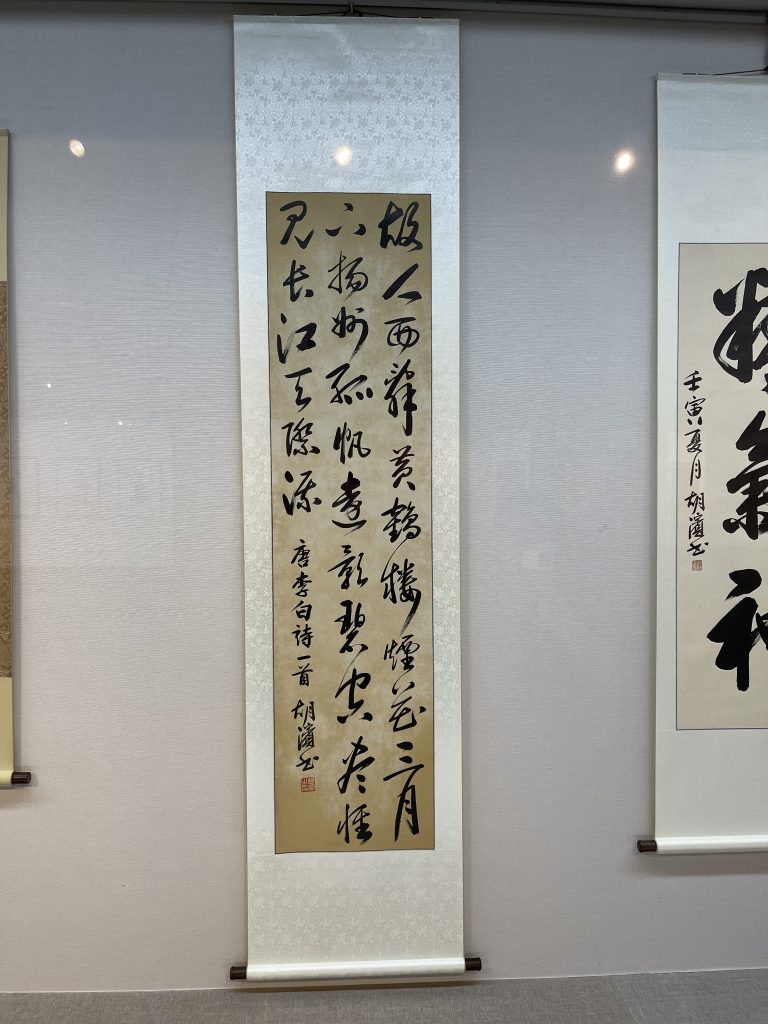 故人西辭黃鶴樓煙花三月
下揚州孤帆遠影碧空盡惟
見長江天際流
唐李白詩一首 胡濱書
精氣神
壬寅夏月 胡濱書